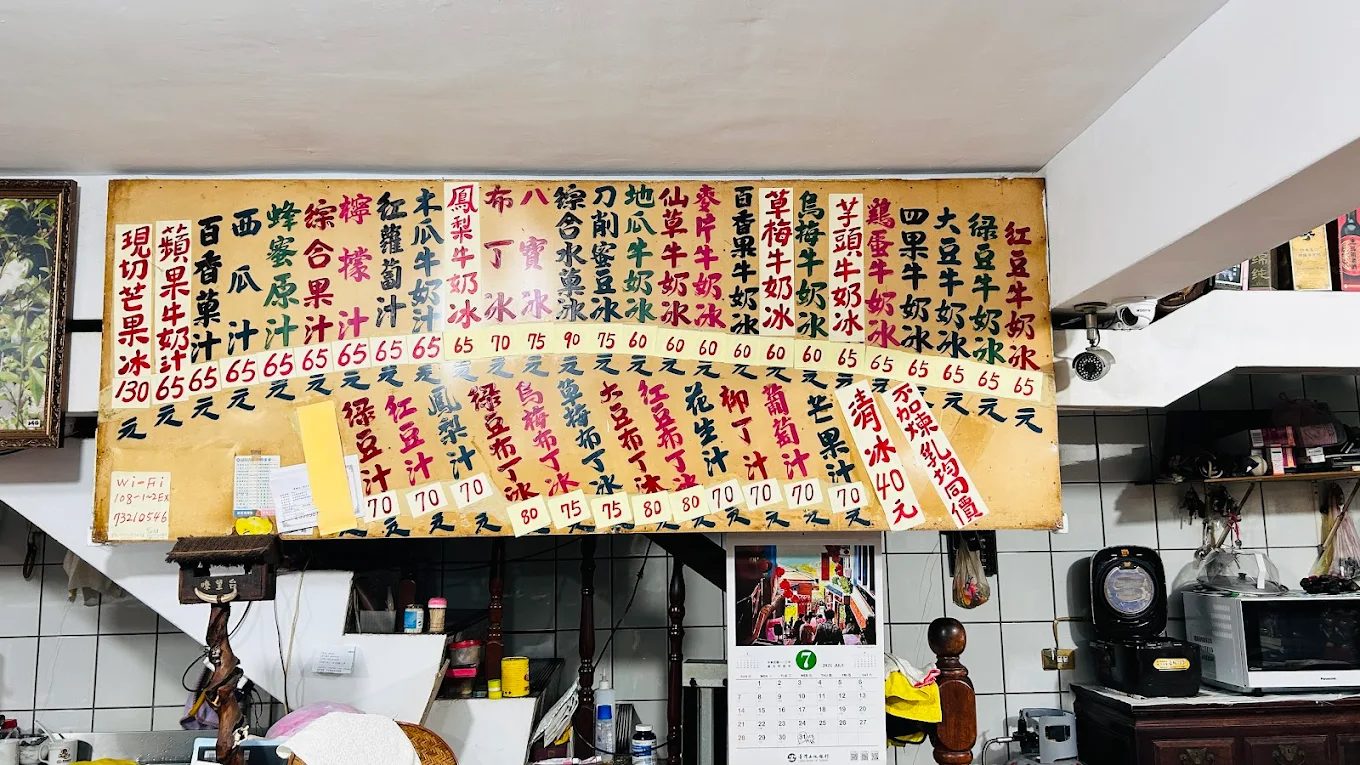 紅豆牛奶冰65元
綠豆牛奶冰65元
大豆牛奶冰65元
四果牛奶冰65元
鷄蛋牛奶冰65元
芋頭牛奶冰65元
烏梅牛奶冰60元
草梅牛奶冰60元
百香果牛奶冰60元
麥片牛奶冰60元
仙草牛奶冰60元
地瓜牛奶冰60元
刀削蜜豆冰75元
綜合水菓冰90元
八寶冰75元
布丁冰70元
鳳梨牛奶冰65元
木瓜牛奶汁65元
紅蘿蔔汁65元
檸檬汁65元
綜合果汁65元
蜂蜜原汁65元
西瓜汁65元
百香菓汁65元
蘋果牛奶汁65元
現切芒果冰130元
不加煉乳均同價
清冰40元
芒果汁70元
葡萄汁70元
柳丁汁70元
花生汁70元
紅豆布丁冰80元
大豆布丁冰80元
草梅布丁冰75元
烏梅布丁冰75元
綠豆布丁冰80元
鳳梨汁70元
紅豆汁70元
綠豆汁70元
Wi-Fi
108-1~2EX
73210546
7
1 2 3 4 5 6
7 8 9 10 11 12 13
14 15 16 17 18 19 20
21 22 23 24 25 26 27
28 29 30 31
Panasonic